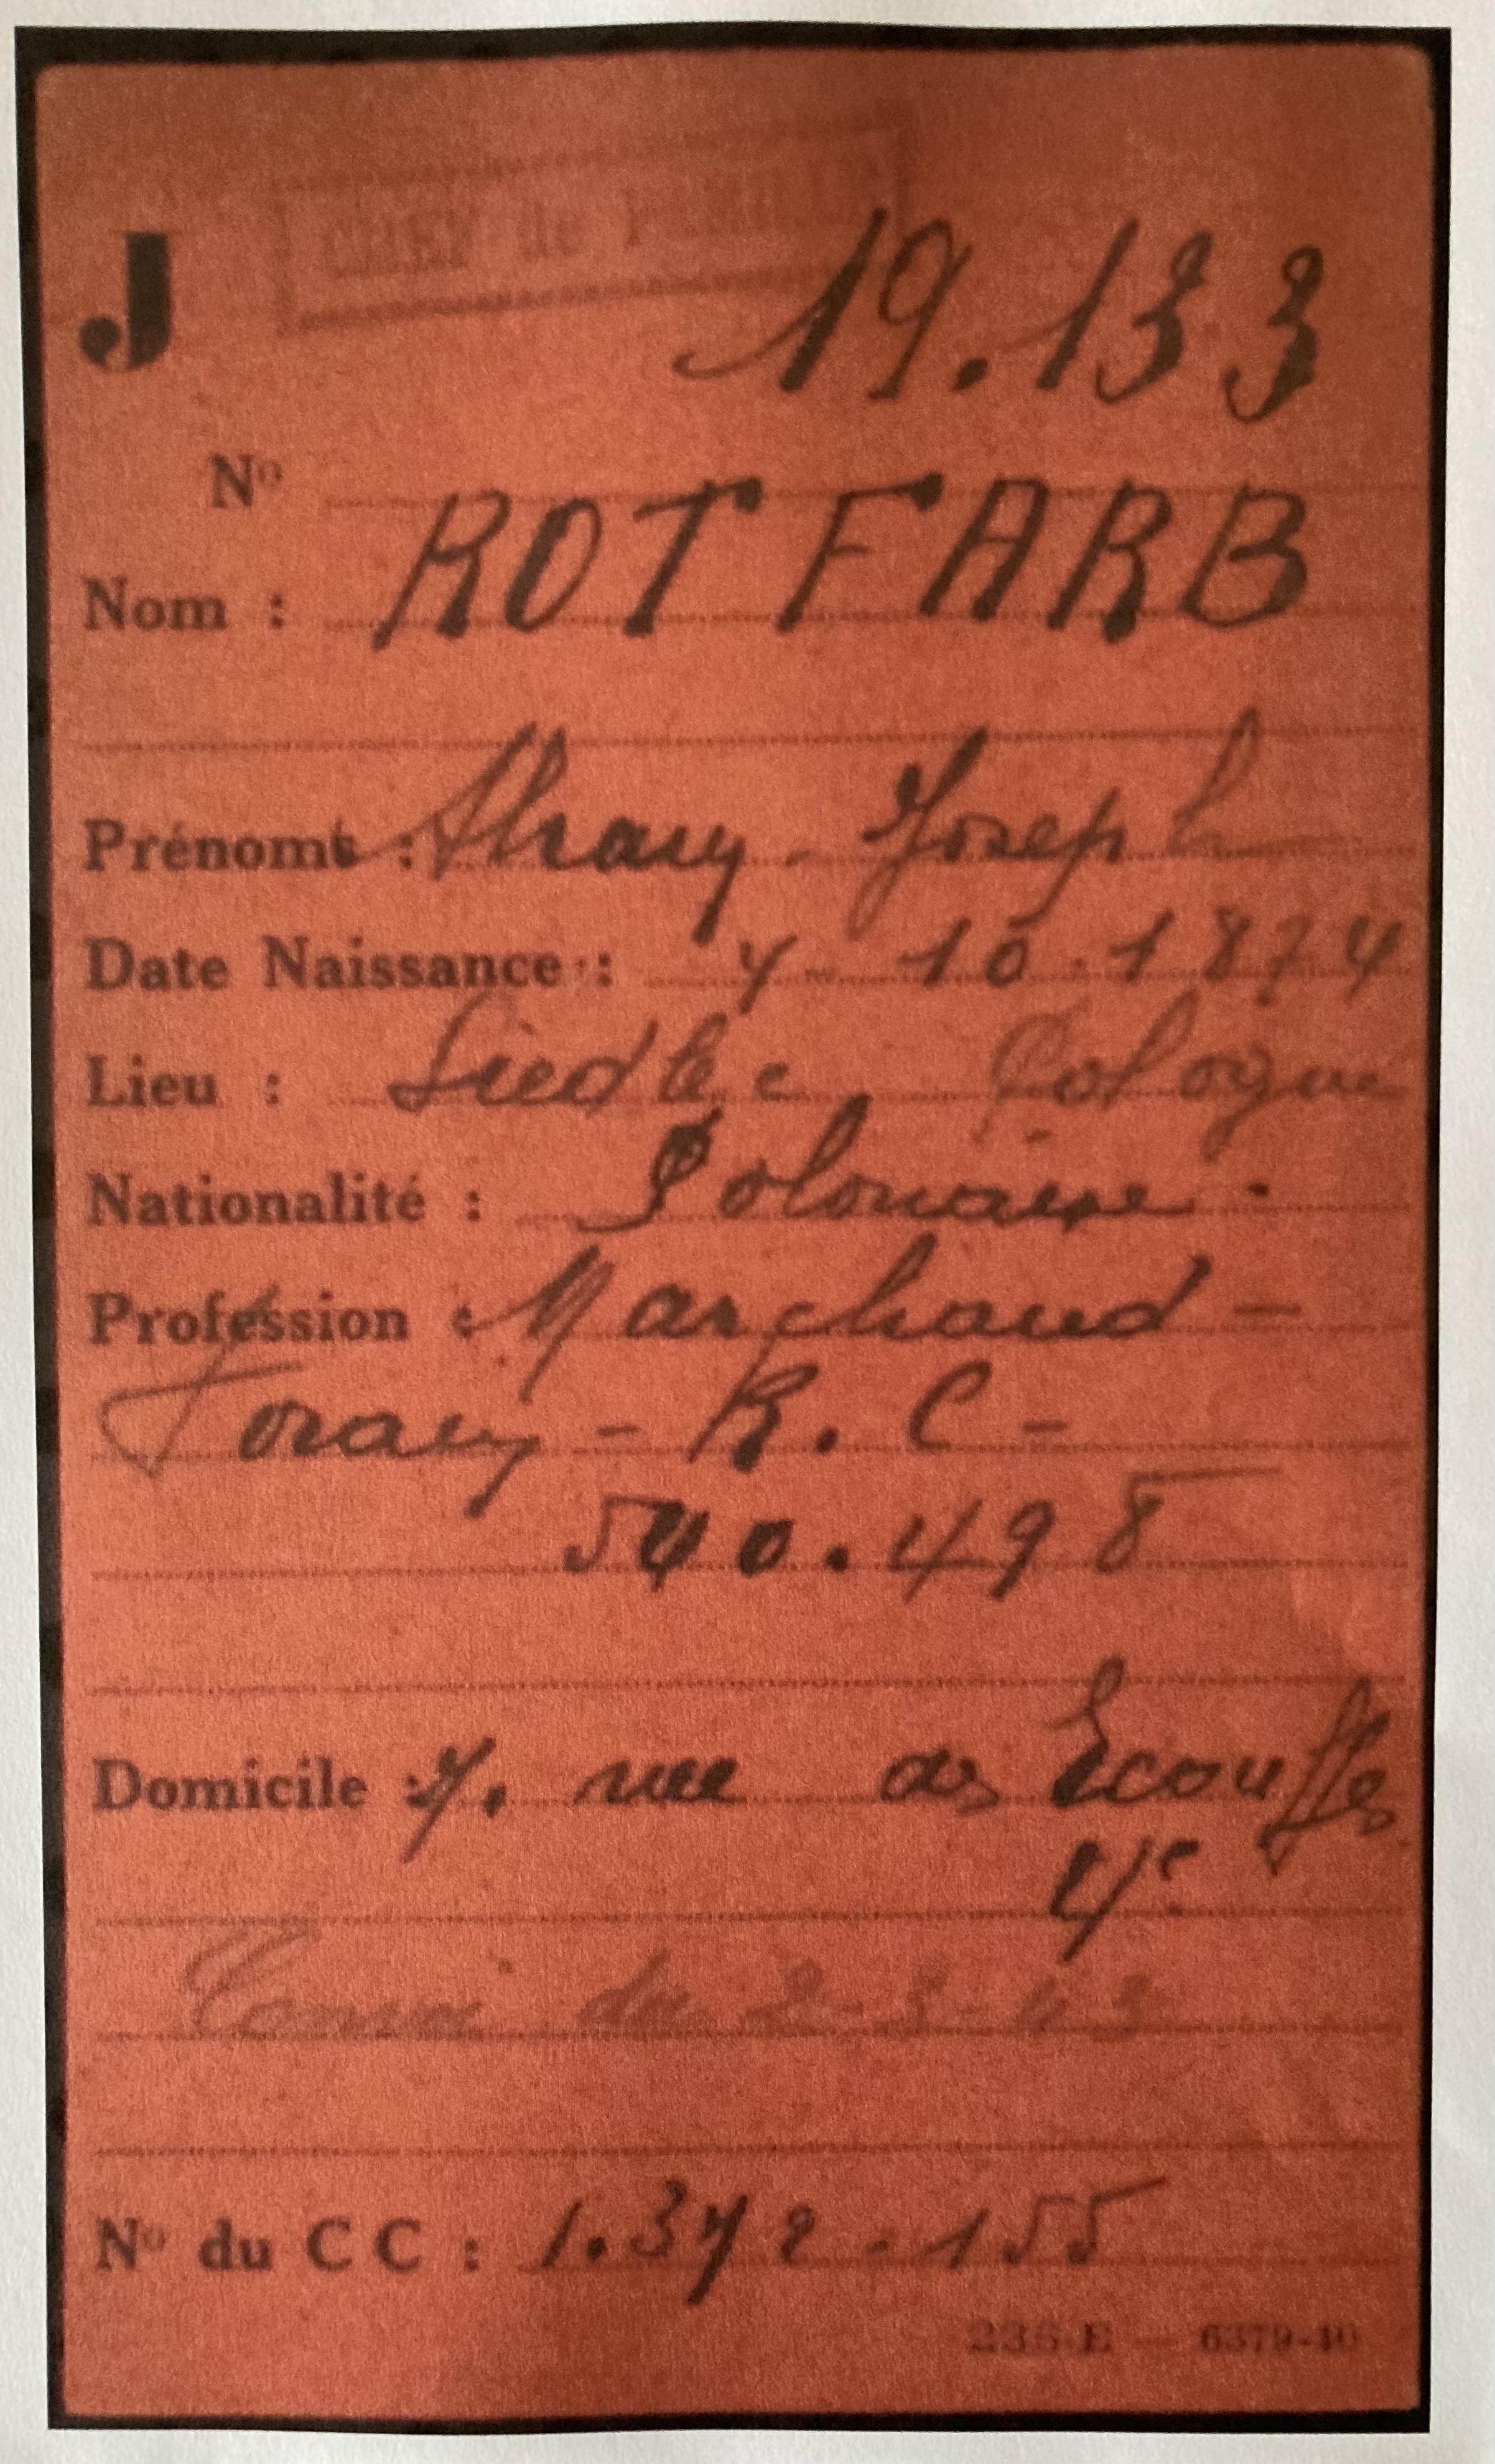 CHEF de FAMILLE
J
19.133
N°
Nom : ROTFARB
Prénoms : Joseph
Date Naissance : 7 - 10 - 1874
Lieu : Siedlce Pologne
Nationalité : Polonaise .
Profession : Marchand -
Forain - R. C -
540.498
Domicile : 7. rue des Ecouffes
4e
du 2-3-43
N° du CC : 1.372.155
236.E — 6379-40